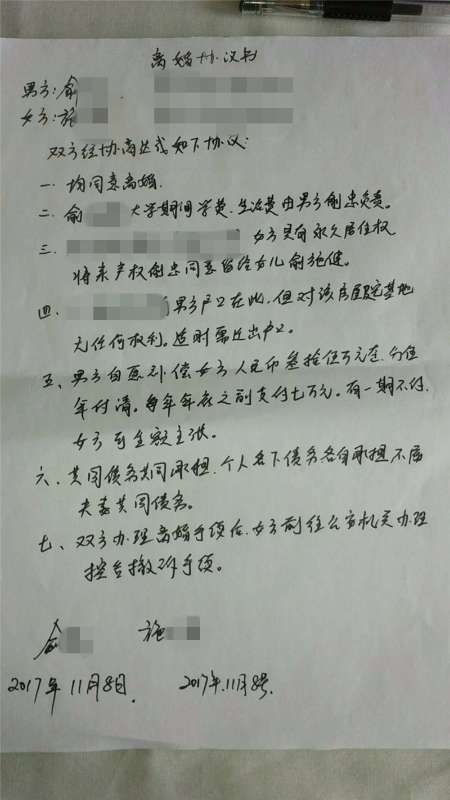 离婚协议书
男方:俞
女方:施
双方经协商达成如下协议:
一、均同意离婚.
二、俞 大学期间学费.生活费由男方俞忠负责。
三、 女方具有永久居住权
将来产权俞忠同意留给女儿俞施健。
四、 男方户口在此,但对该房屋宅基地
无任何权利。适时需迁出户口。
五、男方自愿补偿女方人民币叁拾伍万元正,分伍
年付清。每年年底之前支付七万元。有一期不付,
女方可全额主张。
六、共同债务共同承担,个人名下债务各自承担不属
夫妻共同债务。
七、双方办理离婚手续后,女方前往公安机关办理
控告撤诉手续。
俞 施
2017年11月8日. 2017年.11月8号.